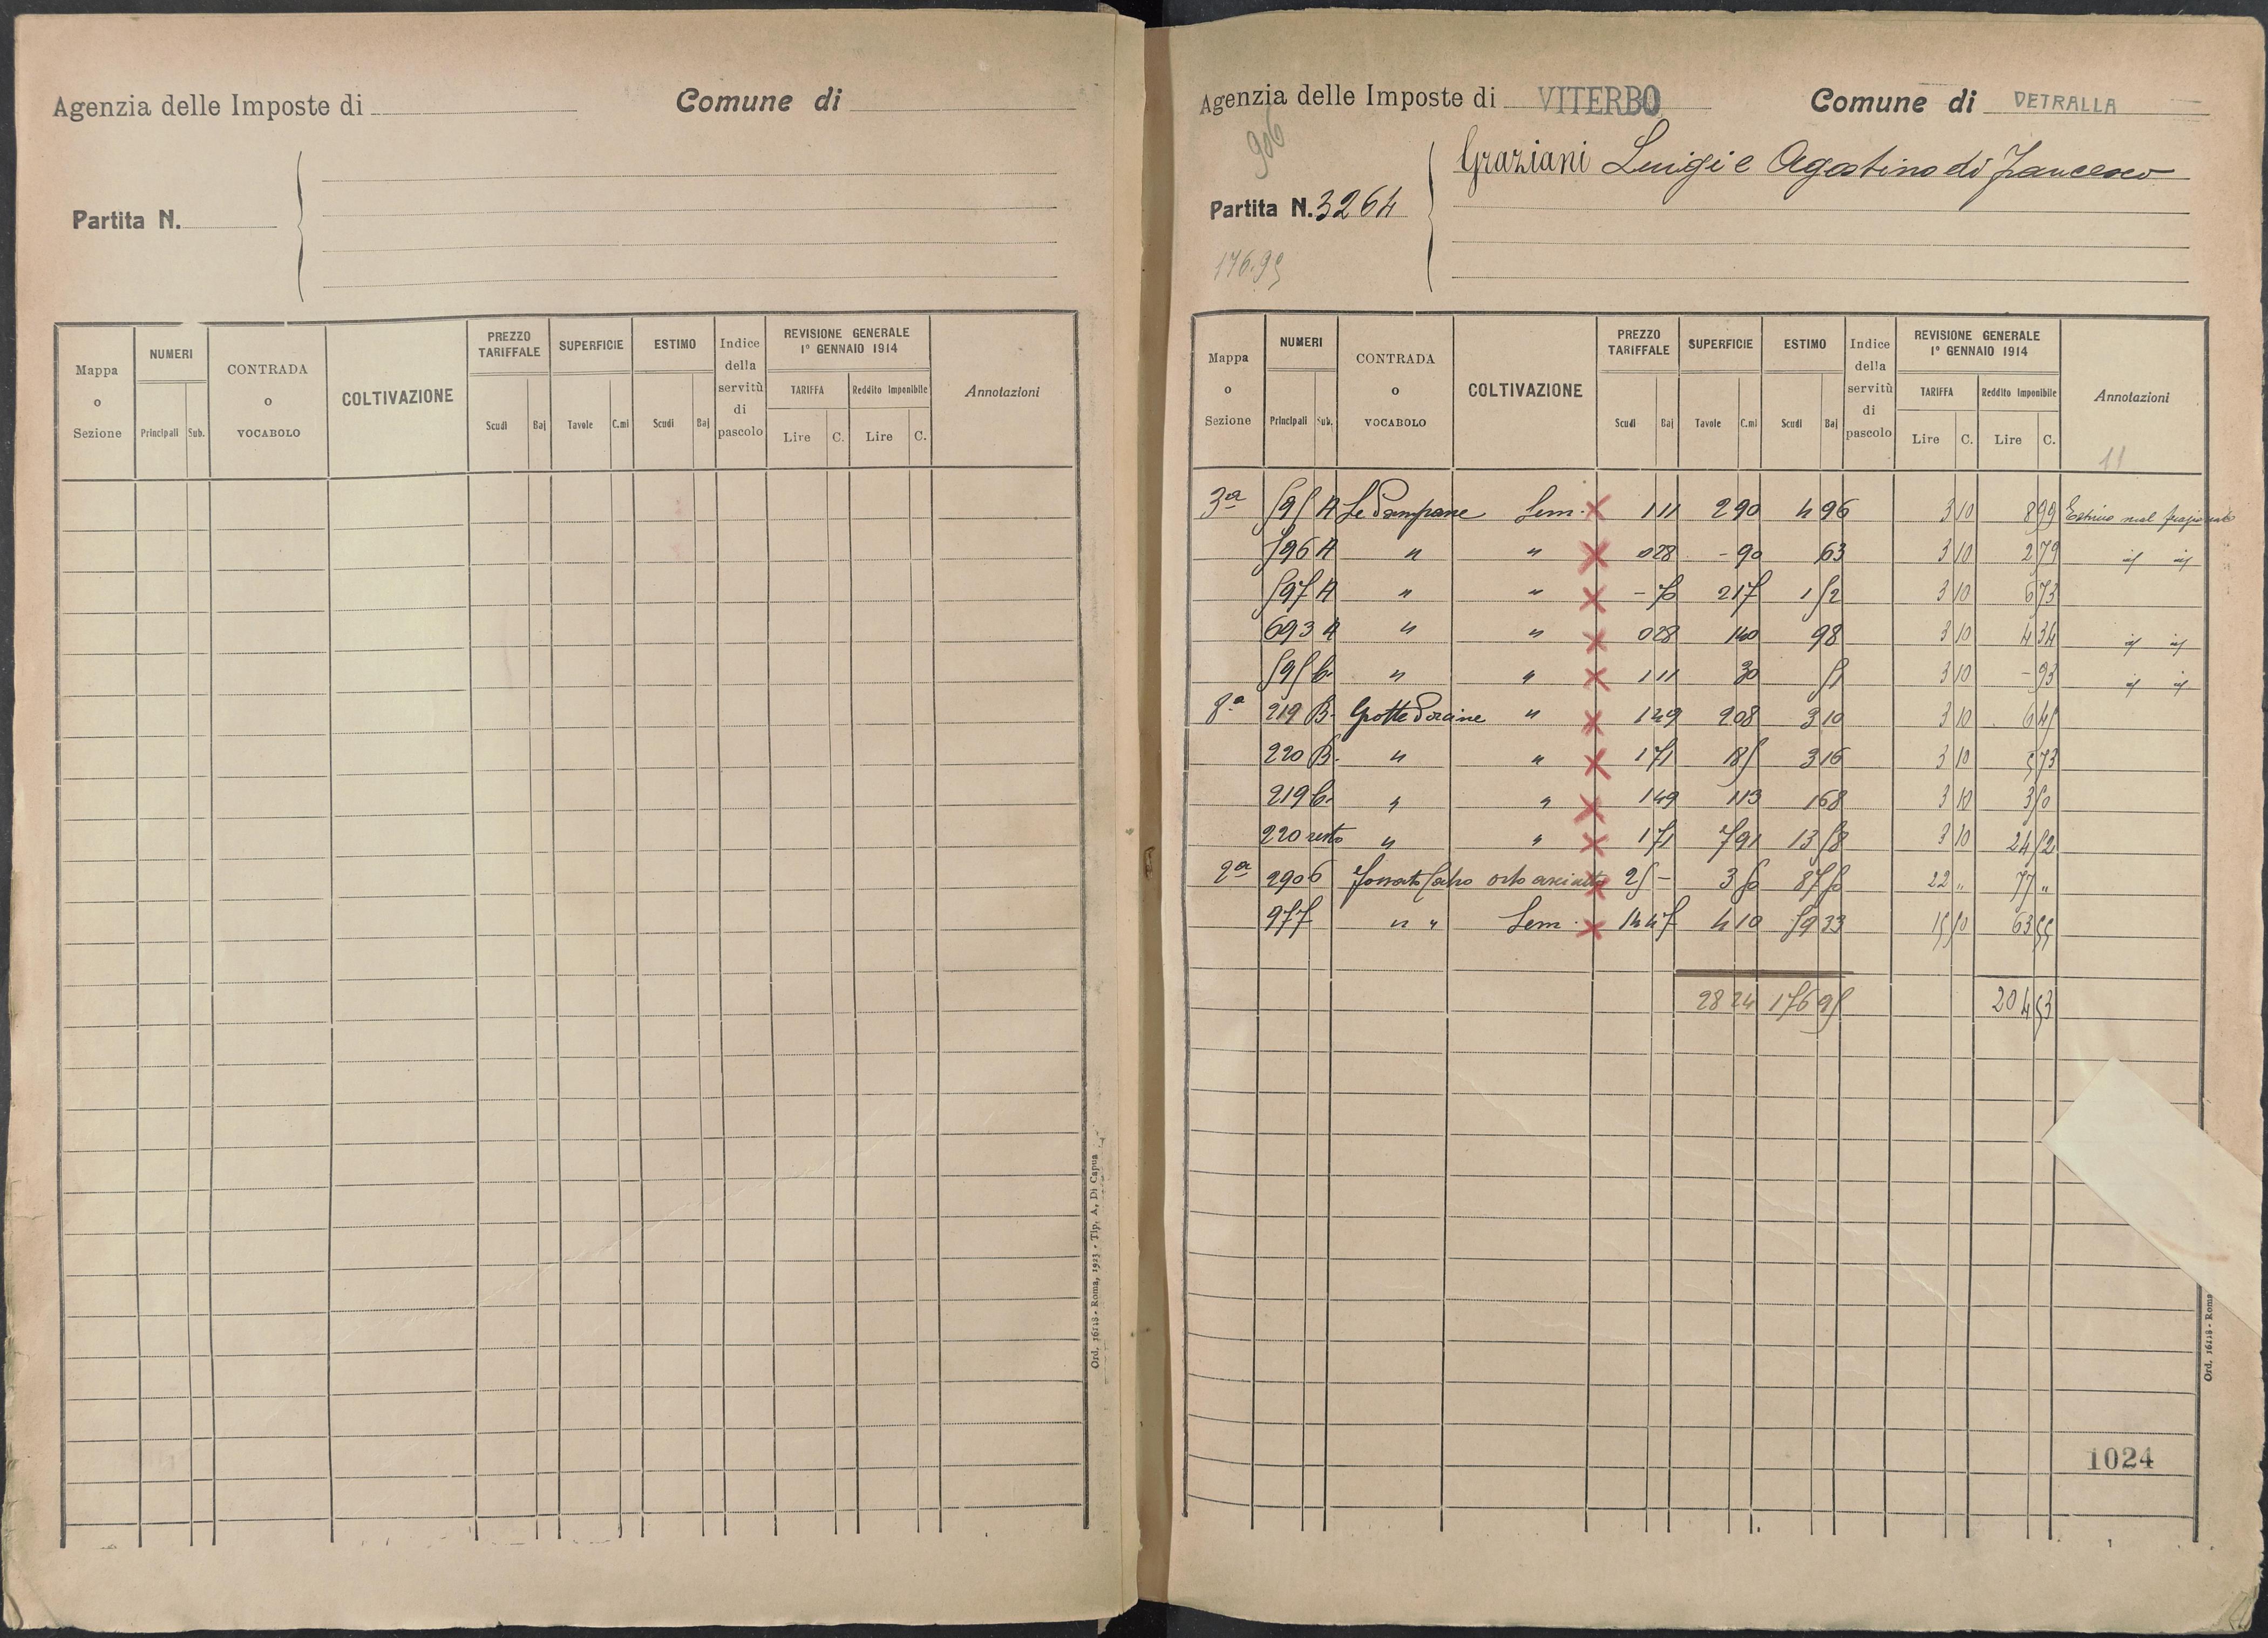 Agenzia delle Imposte di
Comune di
Partita N.
Mappa o Sezione
NUMERI
Principali
Sub.
CONTRADA o VOCABOLO
COLTIVAZIONE
PREZZO TARIFFALE
Scudi
Baj
SUPERFICIE
Tavole
C.mi
ESTIMO
Scudi
Baj
Indice della servitù di pascolo
REVISIONE GENERALE
1° GENNAIO 1914
TARIFFA
Reddito Imponibile
Lire
C.
Lire
C.
Annotazioni
Ord. 16118 - Roma, 1923 - Tip. A, Di Capua
Agenzia delle Imposte di VITERBO
Comune di VETRALLA
906
Graziani Luigi e Agostino di Francesco
Partita N. 3264
176.95
Mappa o Sezione
NUMERI
Principali
Sub.
CONTRADA o VOCABOLO
COLTIVAZIONE
PREZZO TARIFFALE
Scudi
Baj
SUPERFICIE
Tavole
C.mi
ESTIMO
Scudi
Baj
Indice della servitù di pascolo
REVISIONE GENERALE
1° GENNAIO 1914
TARIFFA
Reddito Imponibile
Lire
C.
Lire
C.
Annotazioni
11
3ª 595 A Le Pampane Sem. 1 11 2 90 4 96 3 10 8 99 Estimo mal frazionato
596 A " " 0 28 - 90 63 3 10 2 79 id id
597 A " " - 70 2 17 1 52 3 10 6 73
693 A " " 0 28 1 40 98 3 10 4 34 id id
595 C. " " 1 11 30 51 3 10 - 93 id id
8ª 219 B. Grotte Porcine " 1 49 2 08 3 10 3 10 6 45
220 B. " " 1 71 1 85 3 16 3 10 5 73
219 C. " " 1 49 1 13 1 68 3 10 3 50
220 resto " " 1 71 7 91 13 58 3 10 24 52
2ª 2906 orto asciutto 25 - 3 50 87 50 22 " 77 "
977 " " Sem. 14 47 4 10 59 33 15 50 63 55
28 24 176 95 204 53
1024
Ord. 16118 - Roma